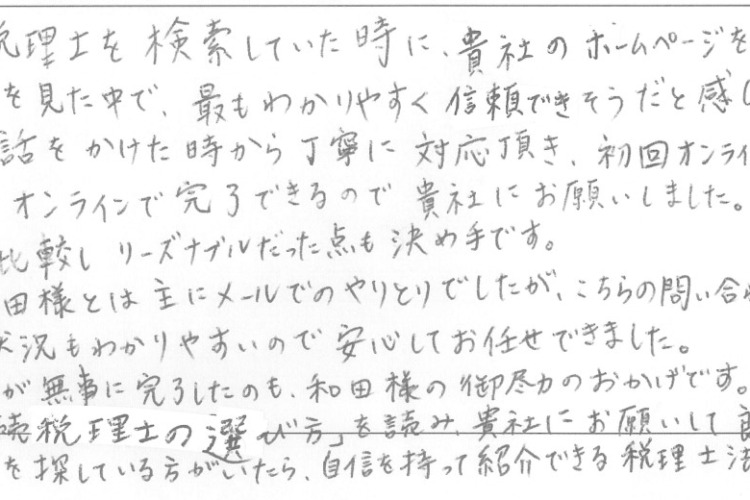 税理士を検索していた時に、貴社のホームページを
を見た中で、最もわかりやすく信頼できそうだと感じ
話をかけた時から丁寧に対応頂き、初回オンライ
オンラインで完了できるので貴社にお願いしました。
比較しリーズナブルだった点も決め手です。
田様とは主にメールでのやりとりでしたが、こちらの問い合わ
状況もわかりやすいので安心してお任せできました。
が無事に完了したのも、和田様の御尽力のおかげです。
続税理士の選び方」を読み、貴社にお願いして
を探している方がいたら、自信を持って紹介できる税理士法